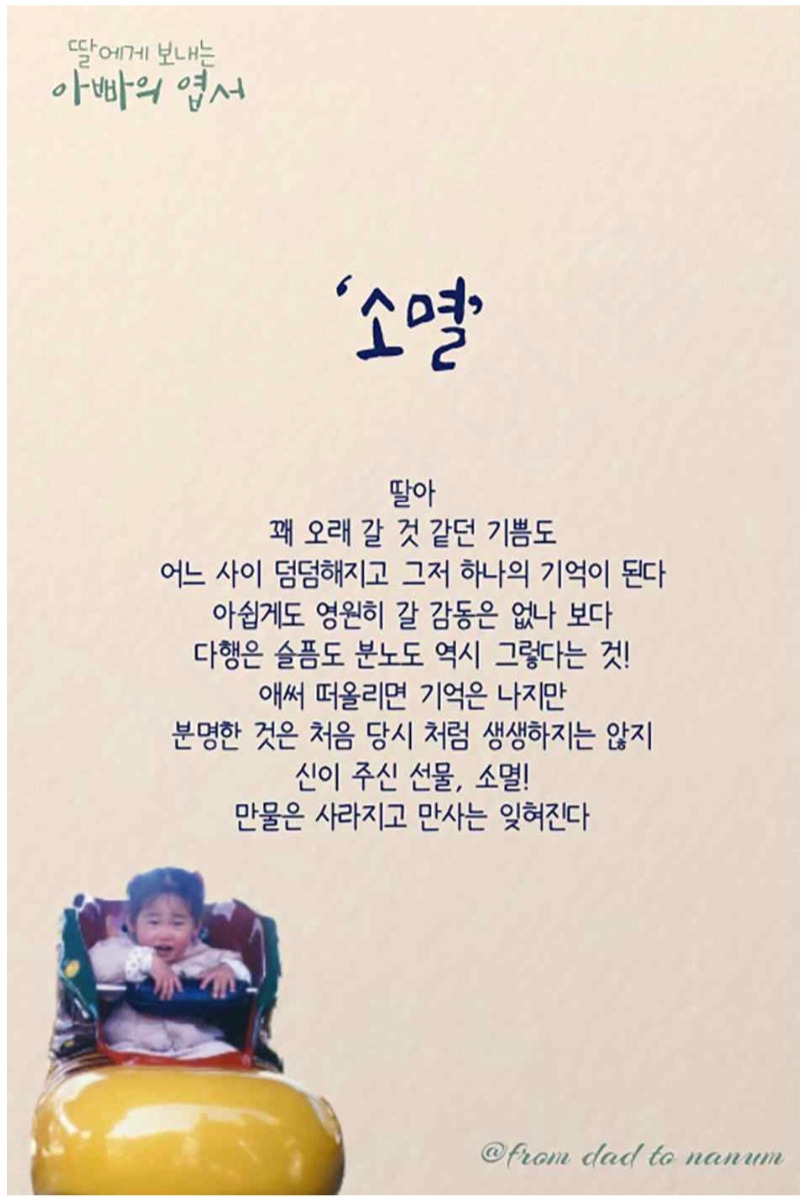 딸에게 보내는
아빠의 엽서
'소멸'
딸아
꽤 오래 갈 것 같던 기쁨도
어느 사이 덤덤해지고 그저 하나의 기억이 된다
아쉽게도 영원히 갈 감동은 없나 보다
다행은 슬픔도 분노도 역시 그렇다는 것!
애써 떠올리면 기억은 나지만
분명한 것은 처음 당시 처럼 생생하지는 않지
신이 주신 선물, 소멸!
만물은 사라지고 만사는 잊혀진다
@from dad to nanum